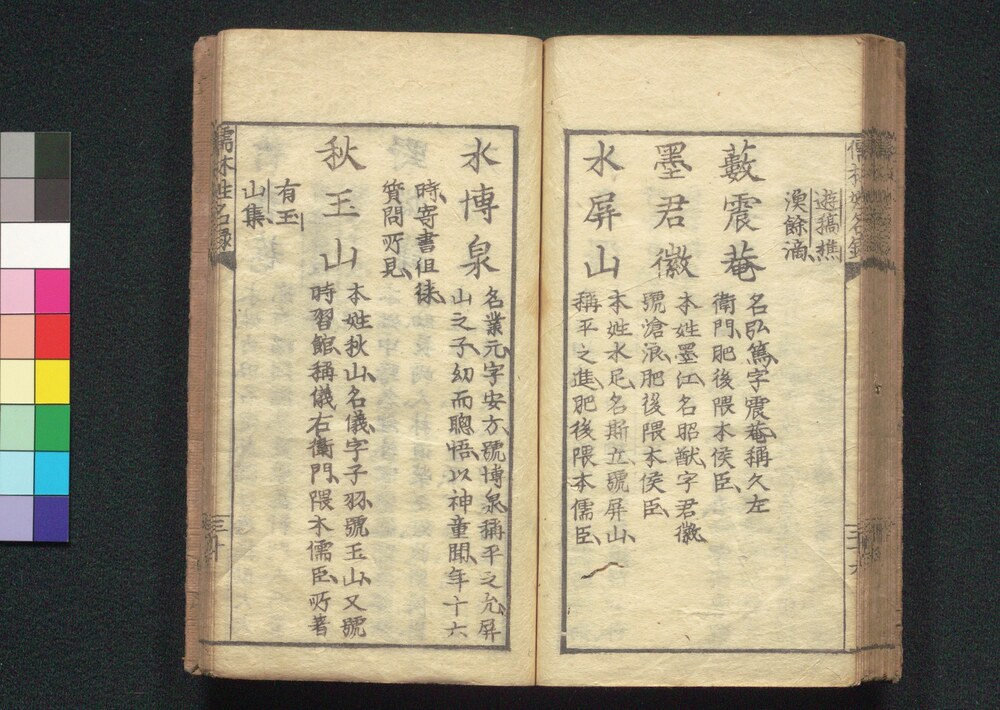 遊稿樵
漁餘滴
藪震菴
名弘篤字震菴稱久左
衛門肥後隈本侯臣
墨君徽
本姓墨江名昭猷字君徽
號滄浪肥後隈本侯臣
水屏山
本姓水足名斯立號屏山
稱平之進肥後隈本儒臣
水博泉
名業元字安方號博泉稱平之允屏
山之子幼而聰悟以神童聞年十六
時寄書徂徠
質問所見
秋玉山
本姓秋山名儀字子羽號玉山又號
時習館稱儀右衛門隈本儒臣所著
有玉
山集
儒林姓名録
三十